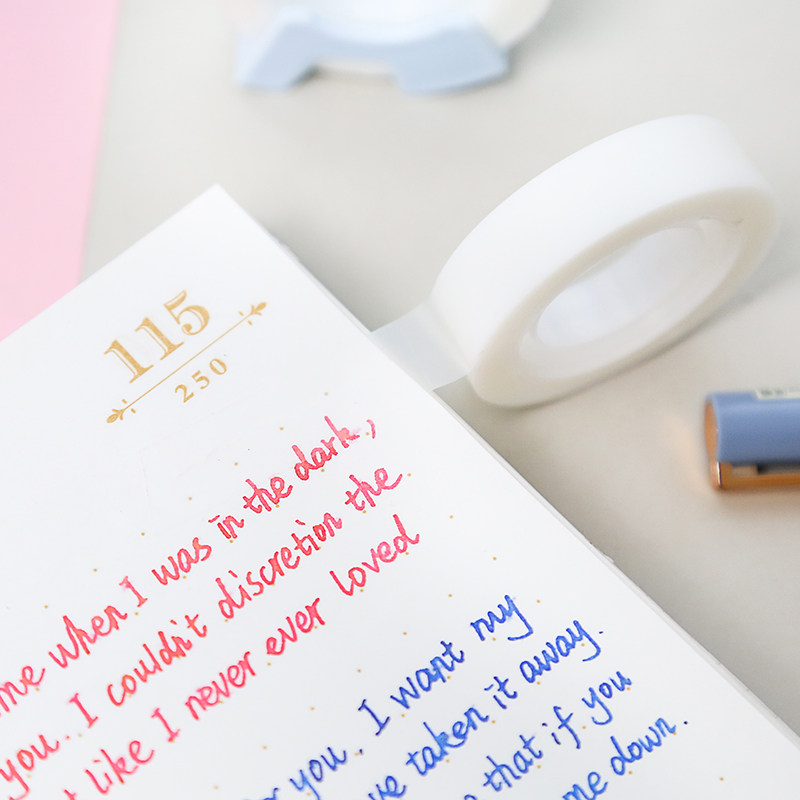 115
250
me when I was in the dark,
you. I couldn't discretion the
like I never ever loved
you. I want my
taken it away.
that if you
me down.